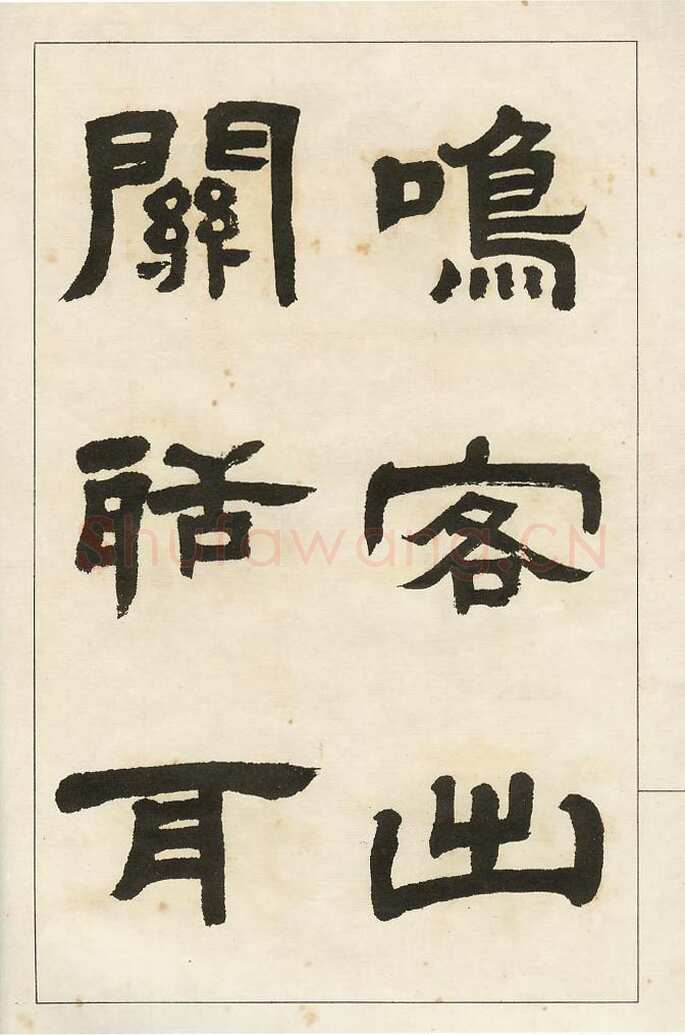 鳴客出
關聒耳
Shufawang.CN